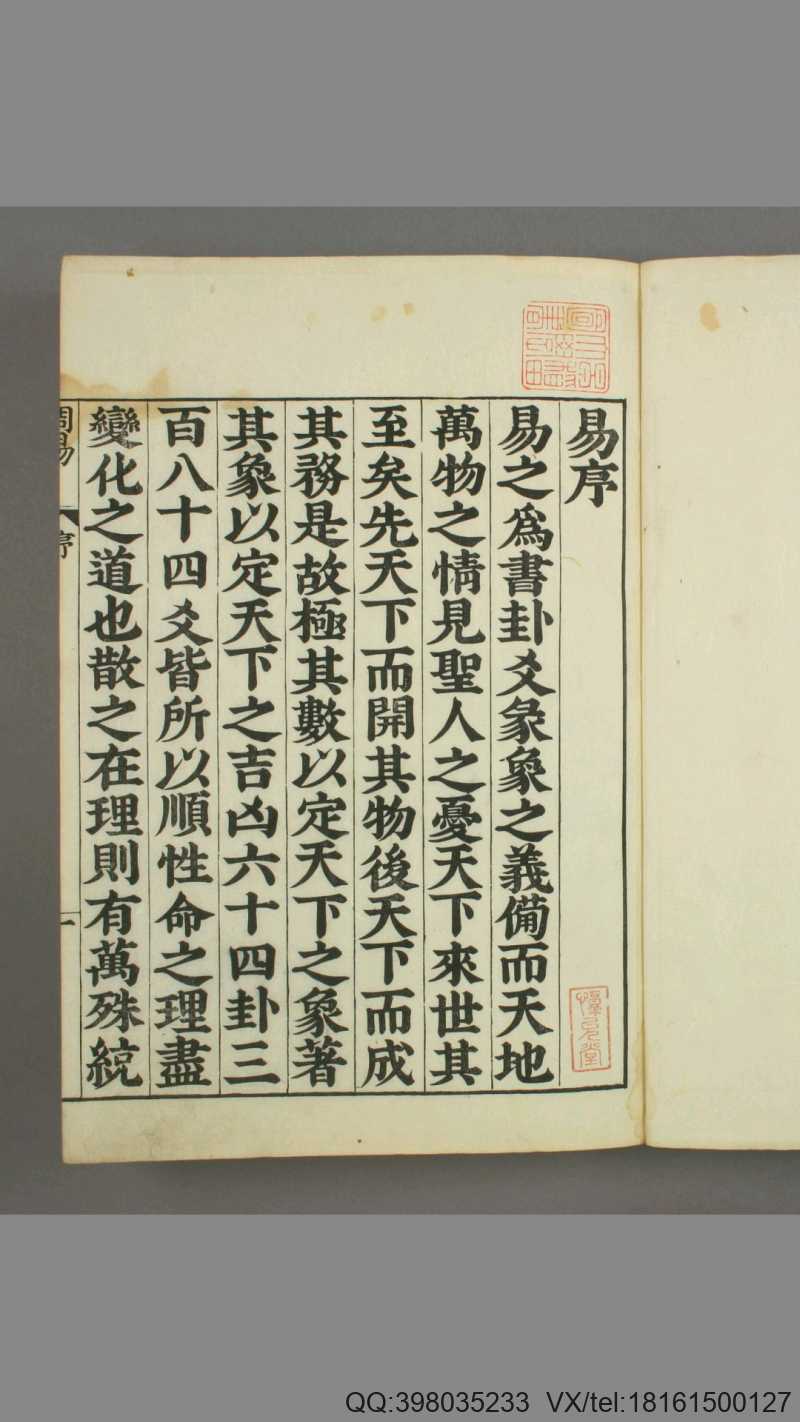 易序
易之爲書卦爻彖象之義備而天地
萬物之情見聖人之憂天下來世其
至矣先天下而開其物後天下而成
其務是故極其數以定天下之象著
其象以定天下之吉凶六十四卦三
百八十四爻皆所以順性命之理盡
變化之道也散之在理則有萬殊統
周易 序
一
QQ:398035233 VX/tel:18161500127